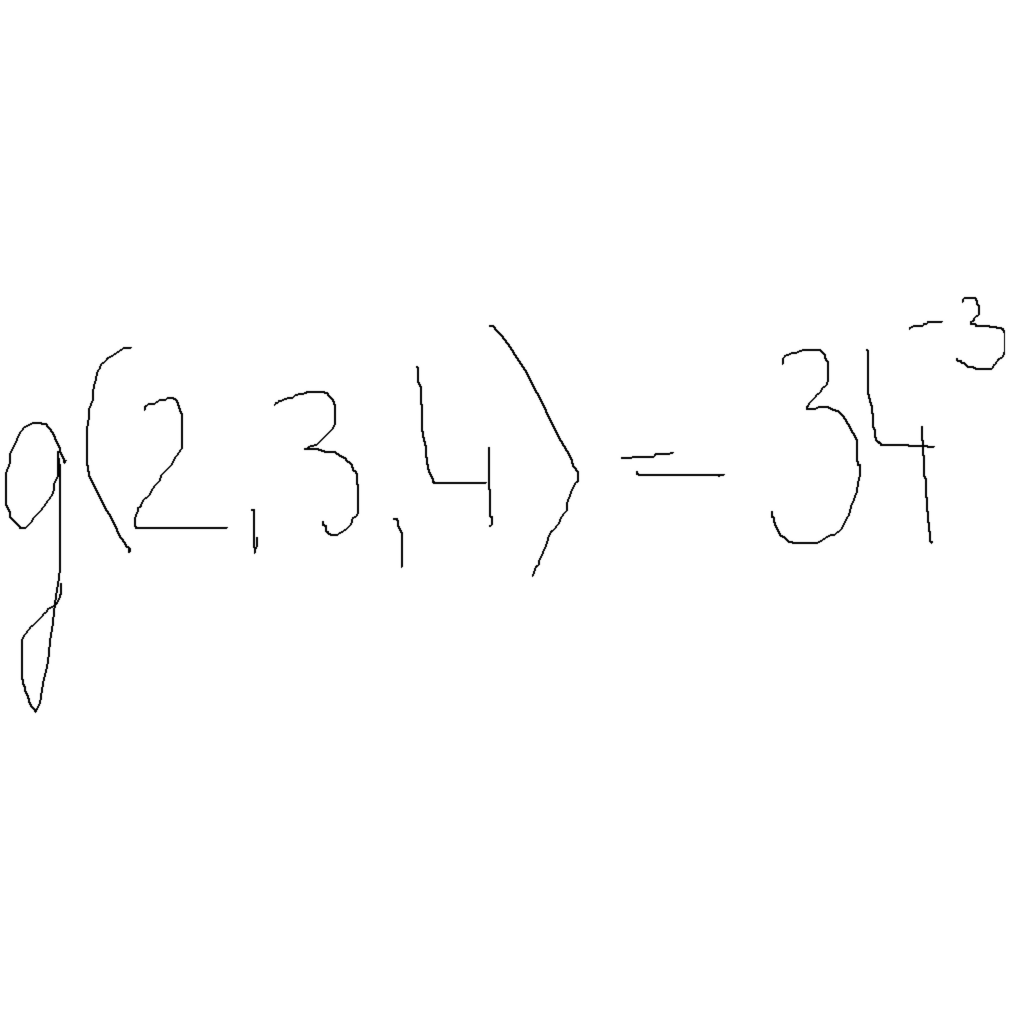 g(2,3,4) = 34⁻³